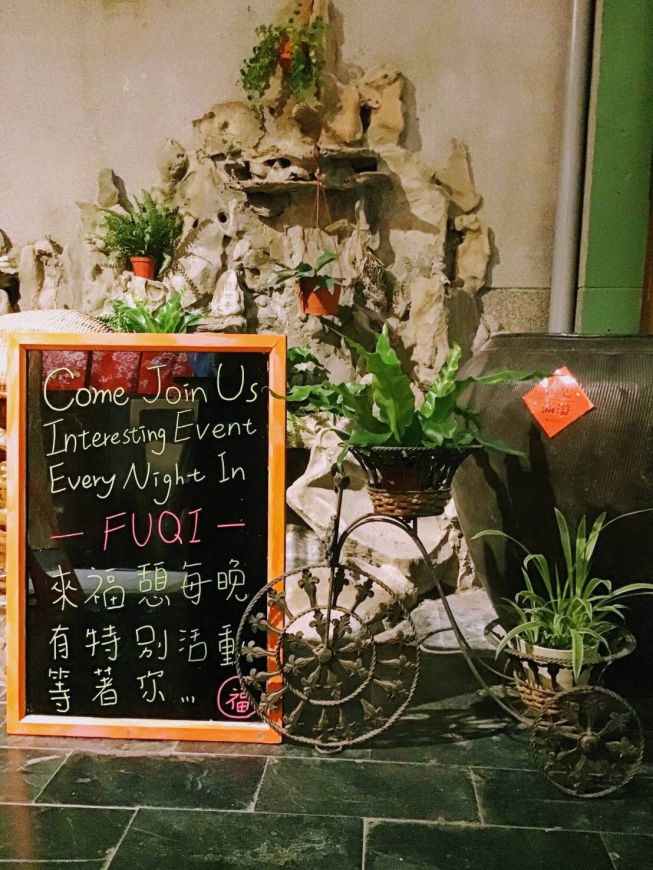 Come Join Us
Interesting Event
Every Night In
— FUQI —
來福憩每晚
有特別活動
等著你...
福
滿溢